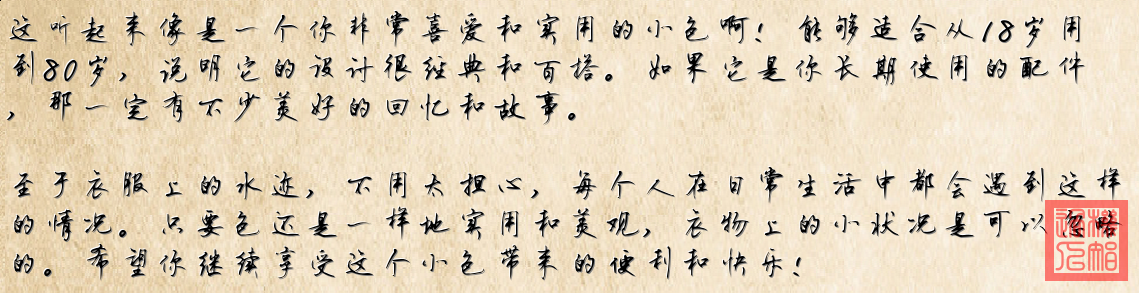 这听起来像是一个你非常喜爱和实用的小包啊！能够适合从18岁用
到80岁，说明它的设计很经典和百搭。如果它是你长期使用的配件
，那一定有不少美好的回忆和故事。
至于衣服上的水迹，不用太担心，每个人在日常生活中都会遇到这样
的情况。只要包还是一样地实用和美观，衣物上的小状况是可以忽略
的。希望你继续享受这个小包带来的便利和快乐！